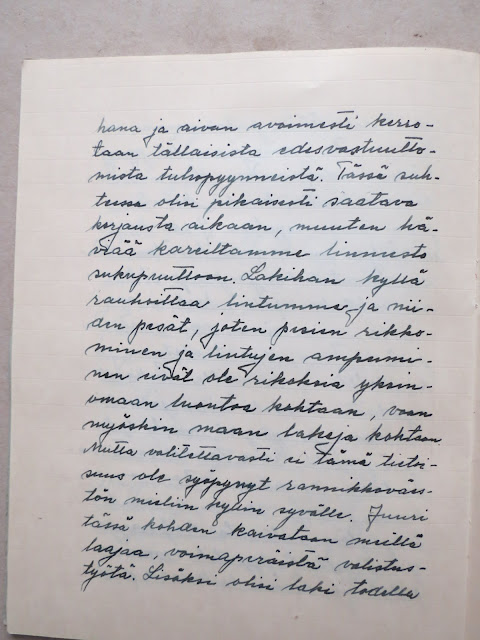 hana ja aivan avoimesti kerro-
taan tällaisista edesvastuutto-
mista tuhopyynneistä. Tässä suh-
teessa olisi pikaisesti saatava
korjausta aikaan, muuten hä-
viää kareiltamme linnusto
sukupuuttoon. Lakihan kyllä
rauhoittaa lintumme ja nii-
den pesät, joten pesien rikko-
minen ja lintujen ampumi-
nen eivät ole rikoksia yksin-
omaan luontoa kohtaan, vaan
myöskin maan lakeja kohtaan.
Mutta valitettavasti ei tämä tietoi-
suus ole syöpynyt rannikkoväes-
tön mieliin kyllin syvälle. Juuri
tässä kohden kaivataan meillä
laajaa, voimaperäistä valistus-
työtä. Lisäksi olisi laki todella